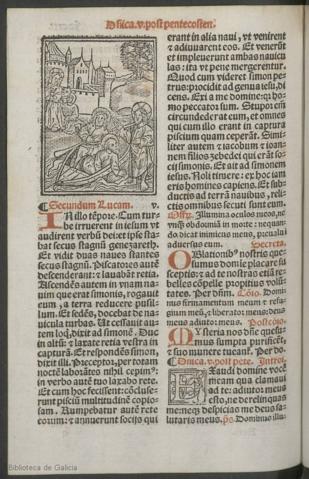 Dñica.v.post pentecosten.
Secundum Lucam. v.
IN illo tẽpore. Cum tur-
be irruerent in iesum vt
audirent verbũ dei: et ipse sta-
bat secus stagnũ genezareth.
Et vidit duas naues stantes
secus stagnũ. Piscatores autẽ
descenderant: et lauabãt retia.
Ascendẽs autem in vnam na-
uim que erat simonis, rogauit
eum a terra reducere pusil-
lum. Et sedẽs, docebat de na-
uicula turbas. Ut cessauit au-
tem loq̃, dixit ad simonẽ. Duc
in altũ: et laxate retia vestra in
capturã. Et respondẽs simon,
dixit illi. Preceptor, per totam
noctẽ laborãtes nihil cepimꝰ:
in verbo autẽ tuo laxabo rete.
Et cum hoc fecissent: cõcluse-
runt pisciũ multitudinẽ copio-
sam. Rumpebatur autẽ rete
eorum: et annuerunt socijs qui
erant in alia naui, vt venirent
et adiuuarent eos. Et venerũt
et impleuerunt ambas nauicu-
las: ita vt pene mergerentur.
Quod cum videret simon pe-
trus: procidit ad genua iesu, di-
cens. Exi a me domine: q̃ ho-
mo peccator sum. Stupor em̃
circundederat eum, et omnes
qui cum illo erant in captura
piscium quam ceperãt. Simi-
liter autem et iacobum et ioan-
nem filios zebedei qui erãt so-
cij simonis. Et ait ad simonem
iesus. Noli timere: ex hoc iam
eris homines capiens. Et sub-
ductis ad terrã nauibus, reli-
ctis omnibus secuti sunt eum
Offr̃. Illumina oculos meos, ne
vnq̃ obdormiã in morte: nequan-
do dicat inimicus meus, preualui
aduersus eum. Secreta.
OBlationibꝰ nostris que-
sumus domine placare su-
sceptis: et ad te nostras etiã re-
belles cõpelle propitius volũ-
tates. Per dñm. Cõio. Domi-
nus firmamentum meum et refu-
gium meũ, et liberator meus: deus
meus adiutor meus. Postcõio.
MYsteria nos dñe quesu-
mus sumpta purificẽt,
et suo munere tueant̃. Per dñ.
Dñica.vi. post pẽte. Introi.
EXaudi domine vocẽ
meam qua clamaui
ad te: adiutor meus
esto, ne derelinquas
me: neq̃ despicias me deus sa-
lutaris meus. ps̃. Dominus illu-
Biblioteca de Galicia